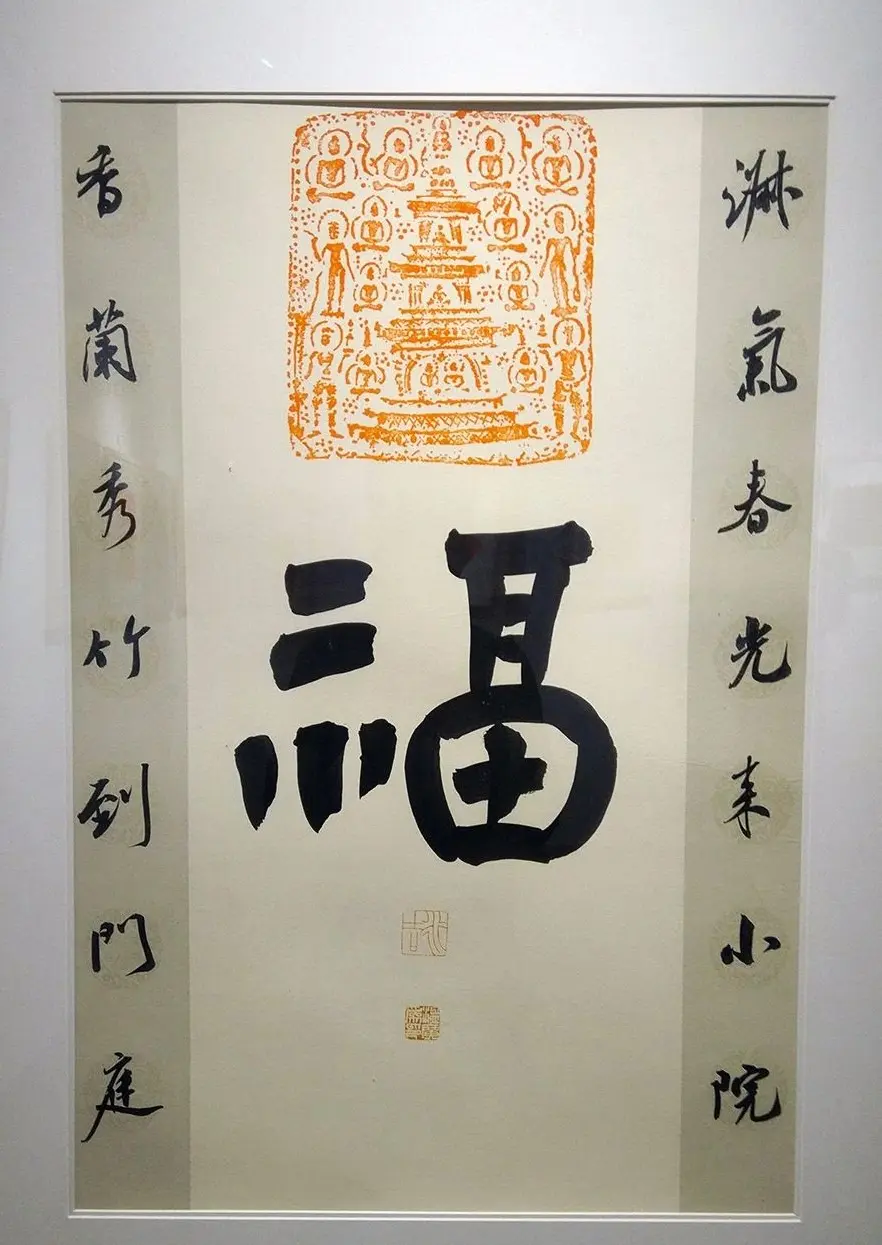 淑氣春光来小院
福
香蘭秀竹到門庭